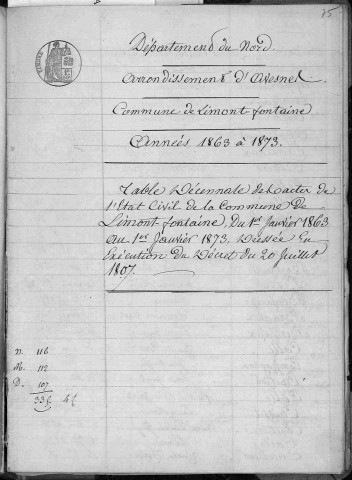 75
Département du Nord.
Arrondissement d'Avesnes.
Commune de Limont-fontaine
Années 1863 à 1873.
Table Décennale des actes de
l'Etat Civil de la Commune de
Limont-fontaine, Du 1er Janvier 1863
au 1er Janvier 1873, Dressée En
Exécution du Décret du 20 Juillet
1807.
N. 116
M. 112
D. 107
335